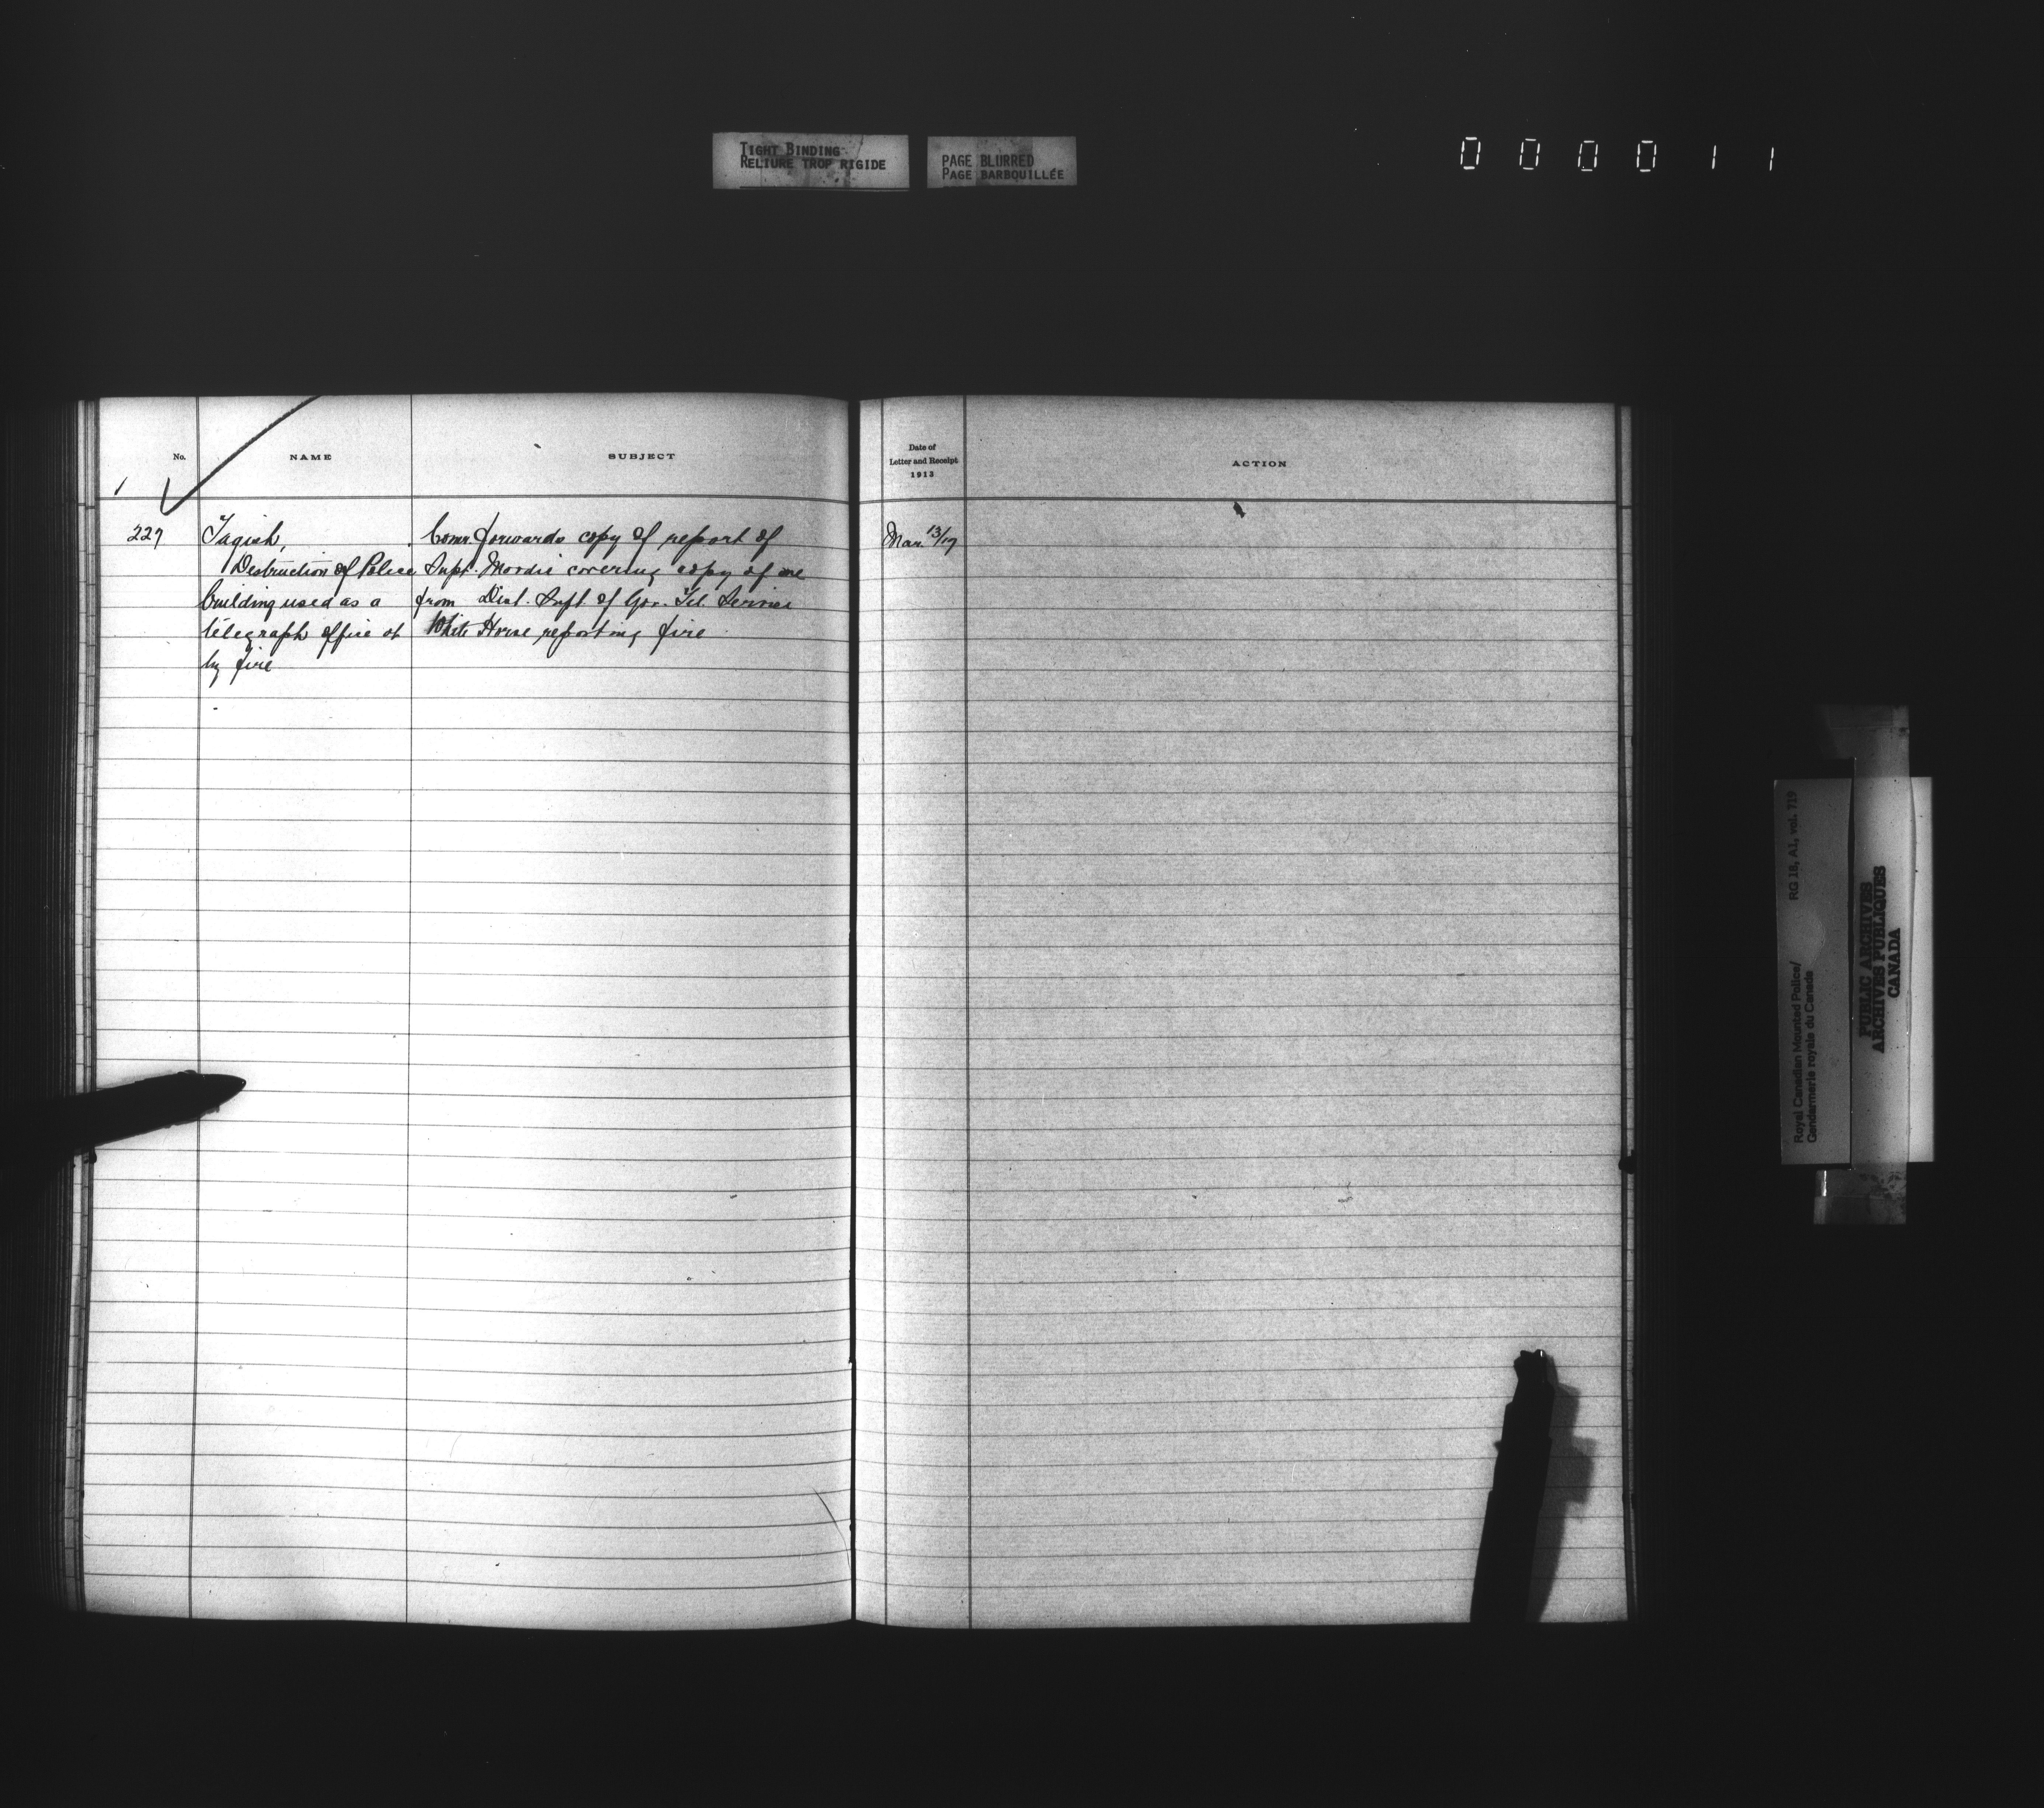 TIGHT BINDING
RELIURE TROP RIGIDE
PAGE BLURRED
PAGE BARBOUILLÉE
000011
No. NAME SUBJECT
Date of
Letter and Receipt
1913
ACTION
227 Tagish, Comr. forwards copy of report of Mar. 13/17
Destruction of Police Supt. Moodie covering copy of one
building used as a from Dist. Supt. of Gov. Tel. Service
telegraph office at White Horse reporting fire
by fire
RG 18, A1, vol. 719
Royal Canadian Mounted Police/
Gendarmerie royale du Canada
PUBLIC ARCHIVES
ARCHIVES PUBLIQUES
CANADA